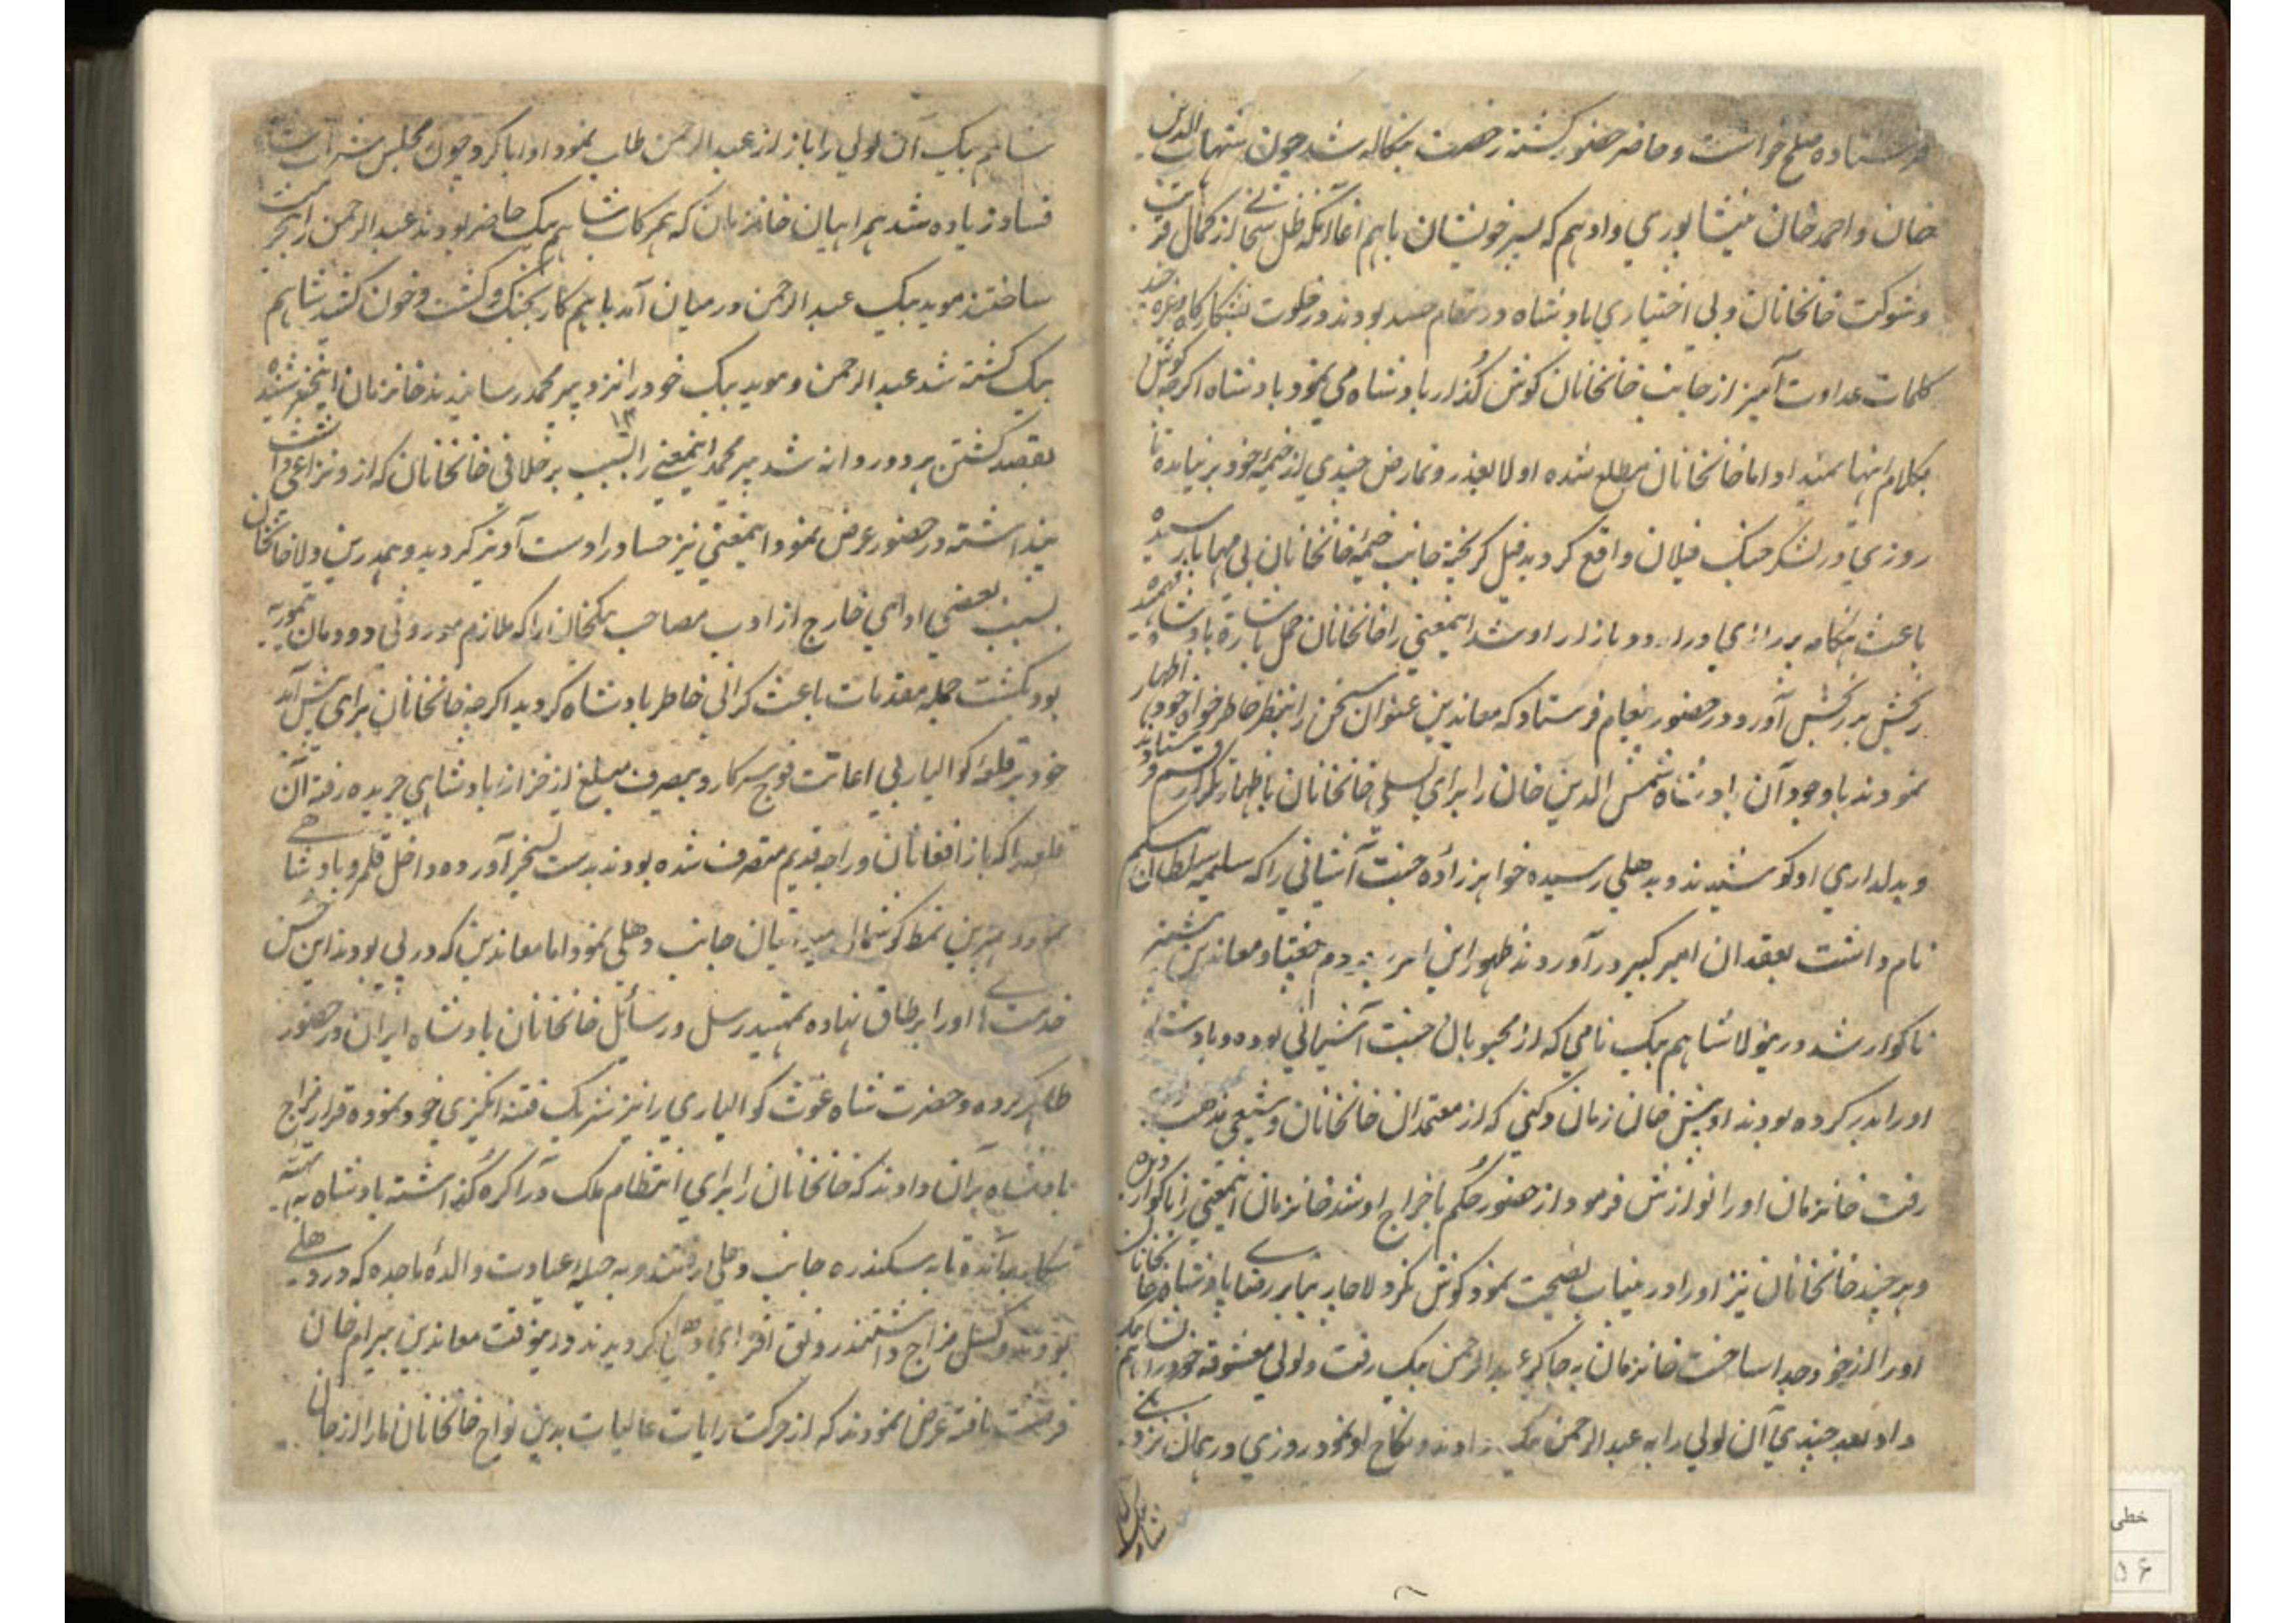 فرستاده صلح خواست و حاضر حضور کشته رخصت بنکاله شد چون شهاب الدین
خان و احمد خان نیشاپوری و ادهم که پسر خویشان ماهم اغا انکه ظل سبحانی از کمال قربت
و شوکت خانخانان و بی اختیاری بادشاه در مقام حسد بودند در خلوت بشکارکاه وغیره
کلمات عداوت آمیز از جانب خانخانان کوش گذار بادشاه می نمود بادشاه اکرچه کوش
بکلام اینها نمیداد اما خانخانان مطلع شده اولا بعذر و تمارض چندی از خیمه خود بر نیامده تا
روزی در لشکر جنک فیلان واقع کردید فیل کریخته جانب خیمه خانخانان بی مهابا رسیده
باعث هنکامه در اردو بازار او شد اینمعنی را خانخانان حمل باشاره بادشاه فهمیده
رنجش بر رنجش آورد و در حضور پیغام فرستاد که معاندین عنوان سخن را بنمط خاطر خواه خود اظهار
نمودند باوجود آن بادشاه شمس الدین خان را برای تسلی خانخانان باظهار قسم فرستادند
و بدلداری او کوشیدند و بدهلی رسیده خواهرزاده جنت آشیانی را که سلیمه سلطان بیکم
نام داشت بعقد آن امیر کبیر در آوردند ظهور این امر بمردم چغتا و معاندین بیشتر
ناکوار شد درینولا شاهم بیک نامی که از محبوبان جنت آشیانی بوده و بادشاه
او را بدر کرده بودند او پیش خان زمان که از معتمدان خانخانان و شیعی مذهب بود
رفت خانزمان او را نوازش فرمود از حضور حکم باخراج او شد خانزمان اینمعنی را ناکوار دیده
و هر چند خانخانان نیز او را درینباب نصیحت نمود کوش نکرد لاچار بنا بر رضای بادشاه خانخانان
او را از خود جدا ساخت خانزمان بجاکیر عبدالرحمن بیک رفت و لولی معشوقه خود را بشاهم بیک
داد بعد چندی آن لولی را به عبدالرحمن بیک دادند و نکاح او نمود روزی در همان نزدیکی
شاهم بیک
شاهم بیک آن لولی را باز از عبدالرحمن طلب نمود او ابا کرد چون مجلس شراب است
فساد زیاده شد همراهیان خانزمان که همرکاب شاهم بیک حاضر بودند عبدالرحمن را بخت
ساختند موید بیک عبدالرحمن در میان آمد باهم کار بجنک و کشت و خون کشید شاهم
بیک کشته شد عبدالرحمن و موید بیک خود را نزد پیر محمد رسانیدند خانزمان اینخبر شنیده
بقصد کشتن هر دو روانه شد پیر محمد اینمعنی را بسبب بر خلافی خانخانان که از و نزاعی داشت
پنداشته در حضور عرض نمود اینمعنی نیز حساد را دست آویز کردید و همدرین ولا خانخانان
بسبب بعضی اداهای خارج از ادب مصاحب بیک خان را که ملازم موروثی دودمان تیموریه
بود بکشت جمله مقدمات باعث کرانی خاطر بادشاه کردید اکرچه خانخانان برای پیش آمد
خود بر قلعه کوالیار بی اعانت فوج سرکار و بصرف مبلغ از خزانه بادشاهی جریده رفته آن
قلعه را که باز افغانان و راجه قدیم متصرف شده بودند بدست تسخیر آورده داخل قلمرو بادشاهی
نمود و بهمین نمط کوشمال میان جانب دهلی نمود اما معاندین که در پی بودند این حسن
خدمتهای او را بر طاق نهاده بتمهید رسل و رسائل خانخانان بادشاه ایران در حضور
ظاهر کرده و حضرت شاه غوث کوالیاری را نیز شریک فتنه انکیزی خود نموده قرار مزاج
بادشاه بر آن دادند که خانخانان را برای انتظام ملک در آکره گذاشته بادشاه به بهانه
شکار بیانه و تا به سکندره جانب دهلی رفتند و به حیله عیادت والده ماجده که در دهلی
بودند و کسل مزاج داشتند رونق افزای دهلی کردیدند درینوقت معاندین بیرام خان
فرصت یافته عرض نمودند که از حرکت رایات عالیات بدین نواح خانخانان ما را از جان
خطی
۵۶